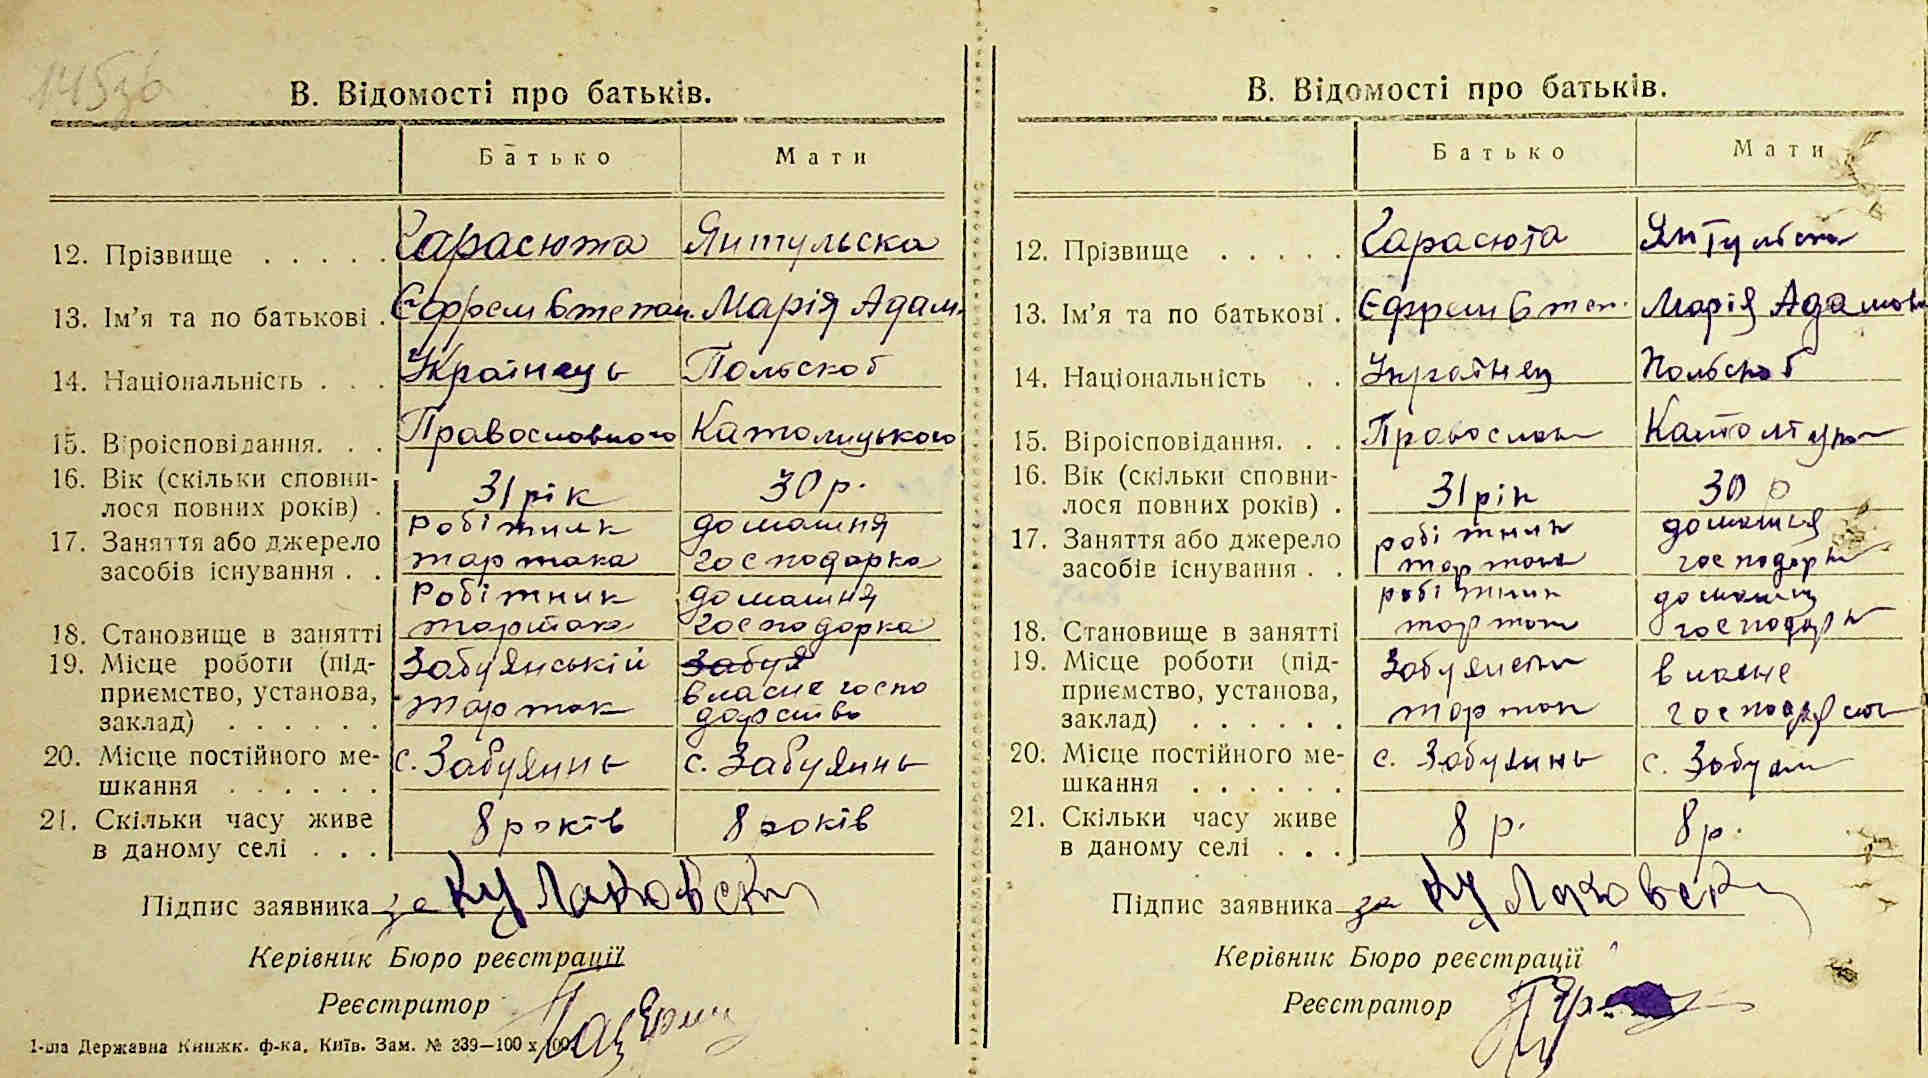 145зв
В. Відомості про батьків.
Батько Мати
12. Прізвище . . . . . Гарасюта Янтульска
13. Ім'я та по батькові . Єфрем Степан. Марія Адам.
14. Національність . . . Українець Польскоб
15. Віроісповідання. . . Православного Католицького
16. Вік (скільки сповни-
лося повних років) . 31 рік 30 р.
17. Заняття або джерело робітник домашня
засобів існування . . тартака господарка
Робітник домашня
18. Становище в занятті тартака господарка
19. Місце роботи (під- Забуянській Забуя
приємство, установа, тартак власне госпо
заклад) . . . . . . дарство
20. Місце постійного ме- с. Забуяннь с. Забуяннь
шкання . . . . . .
21. Скільки часу живе 8 років 8 років
в даному селі . . .
Підпис заявника за Кулаковски
Керівник Бюро реєстрації
Реєстратор
1-ша Державна Книжк. ф-ка, Київ. Зам. № 339—100 x 100.
В. Відомості про батьків.
Батько Мати
12. Прізвище . . . . . Гарасюта Янтульска
13. Ім'я та по батькові . Єфрем Степ. Марія Адамов
14. Національність . . Украінец Польскоб
15. Віроісповідання. . . Православн
16. Вік (скільки сповни-
лося повних років) . 31 рік 30 р
17. Заняття або джерело робітник домашня
засобів існування . . тартака господарк
робітник домашня
18. Становище в занятті тартак господарк
19. Місце роботи (під- Забуянськ власне
приємство, установа, тартак
заклад) . . . . . .
20. Місце постійного ме- с. Забуяннь с. Забуян
шкання . . . . . .
21. Скільки часу живе 8 р. 8 р.
в даному селі . . .
Підпис заявника за Кулаковски
Керівник Бюро реєстрації
Реєстратор